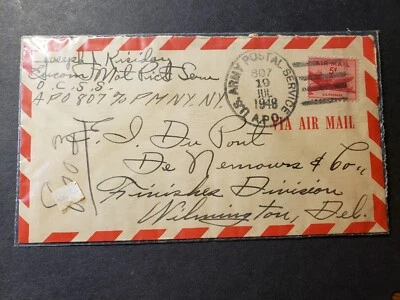 Joseph J. Krisiday
Eucom Mot Pict Serv
O.C.S.S.
APO 807 % PM NY. NY.
U.S. ARMY POSTAL SERVICE
807
19
JUL
1948
A.P.O.
AIR MAIL
5¢
VIA AIR MAIL
E. I. Du Pont
De Nemours & Co.,
Finishes Division
Wilmington, Del.